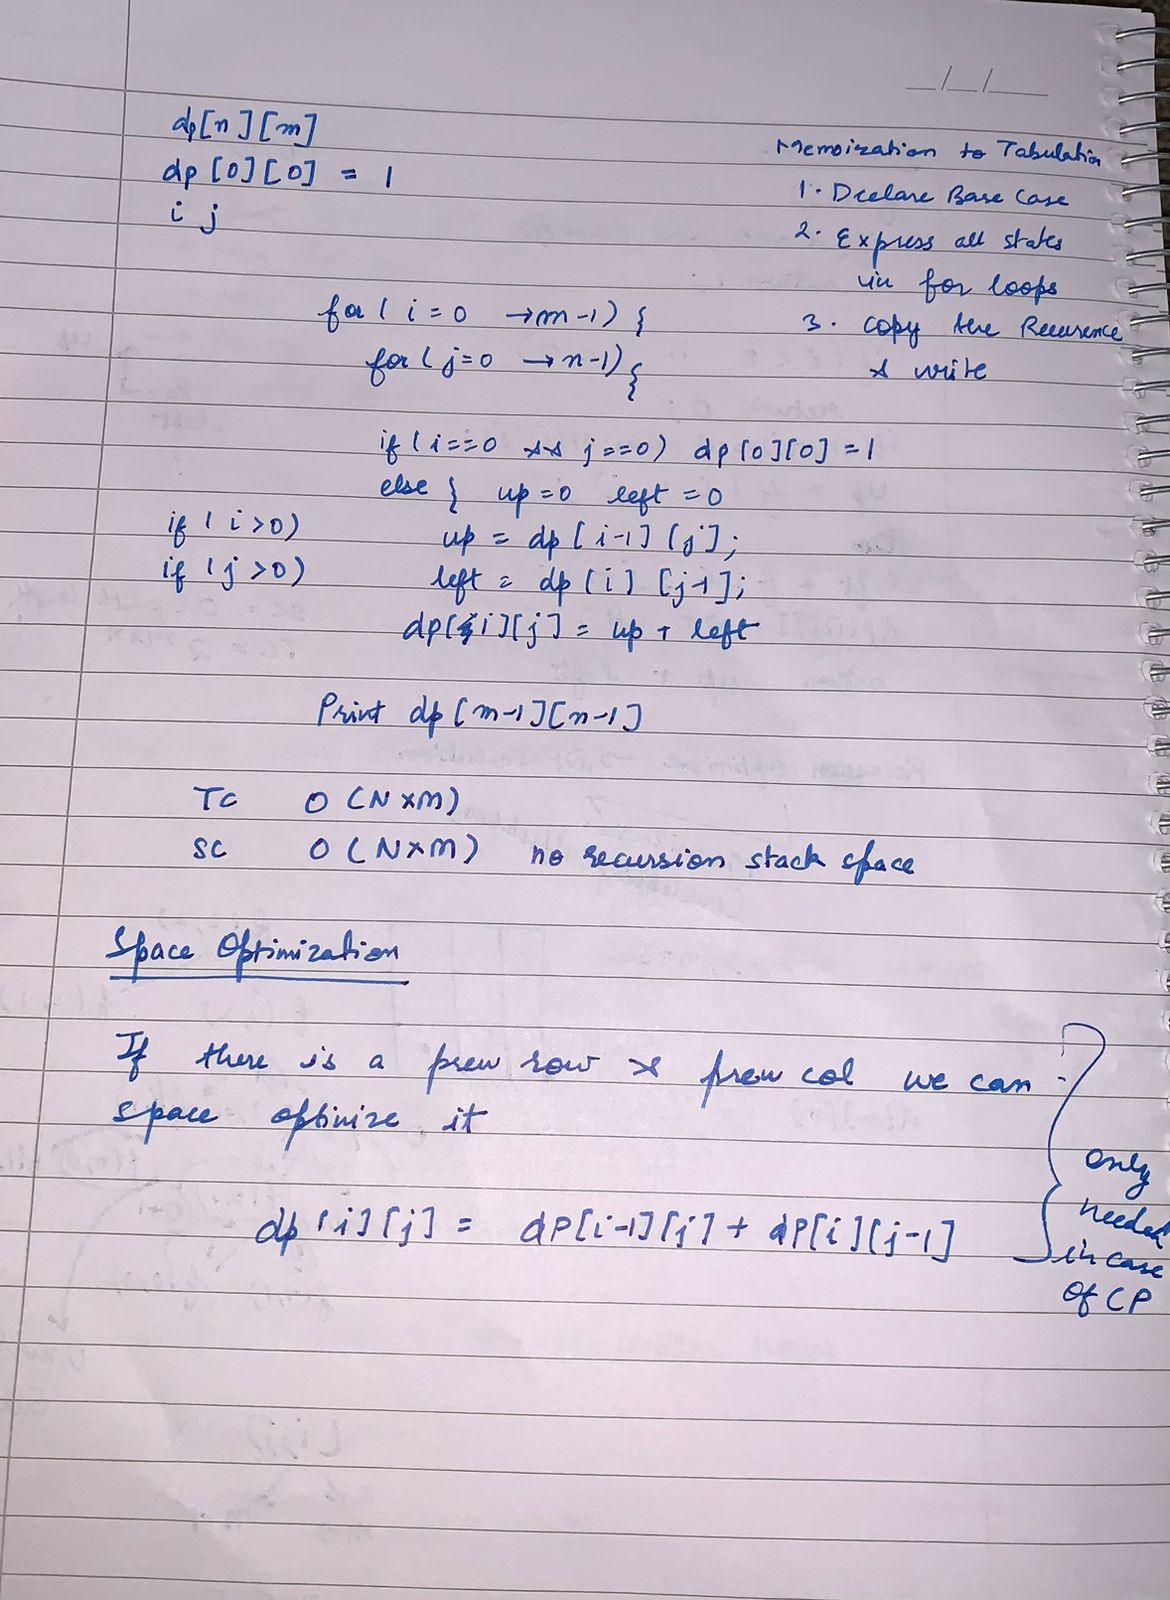 __/__/____
dp[n][m]
dp[0][0] = 1
i j
Memoization to Tabulation
1. Declare Base Case
2. Express all states
in for loops
3. copy the Recurrence
& write
for ( i = 0 → m-1) {
for ( j = 0 → n-1) {
if ( i==0 && j==0) dp[0][0] = 1
else { up = 0 left = 0
if ( i > 0) up = dp [ i-1] [j];
if ( j > 0) left = dp [ i ] [j-1];
dp[i][j] = up + left
Print dp [m-1][n-1]
TC O (N×M)
SC O (N×M) no recursion stack space
Space Optimization
If there is a prev row & prev col we can
space optimize it
dp [i][j] = dP[i-1][j] + dP[i][j-1]
only
needed
in case
of CP